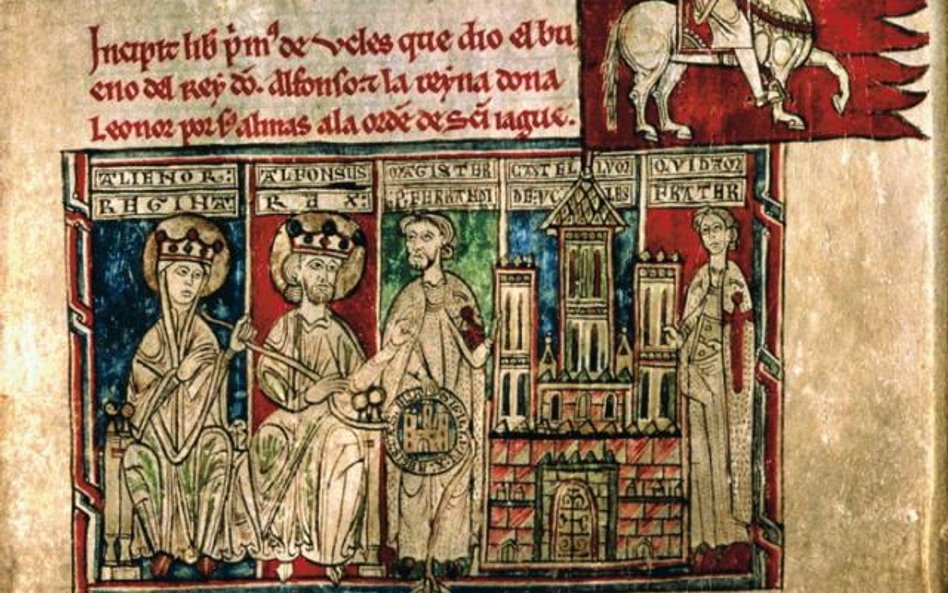 Incipit lib p̄m⁹ de Vcles que dio el bu
eno del Rey dō. Alfonso. ⁊ la reyna dona
Leonor por almas a la ordē de Sc̄i iague.
ALIENOR:
REGINA:
ALFONSUS
REX:
MAGISTER
P. FERRANDI
CASTEL LVM
DE VC LES
QVIDAM
FRATER